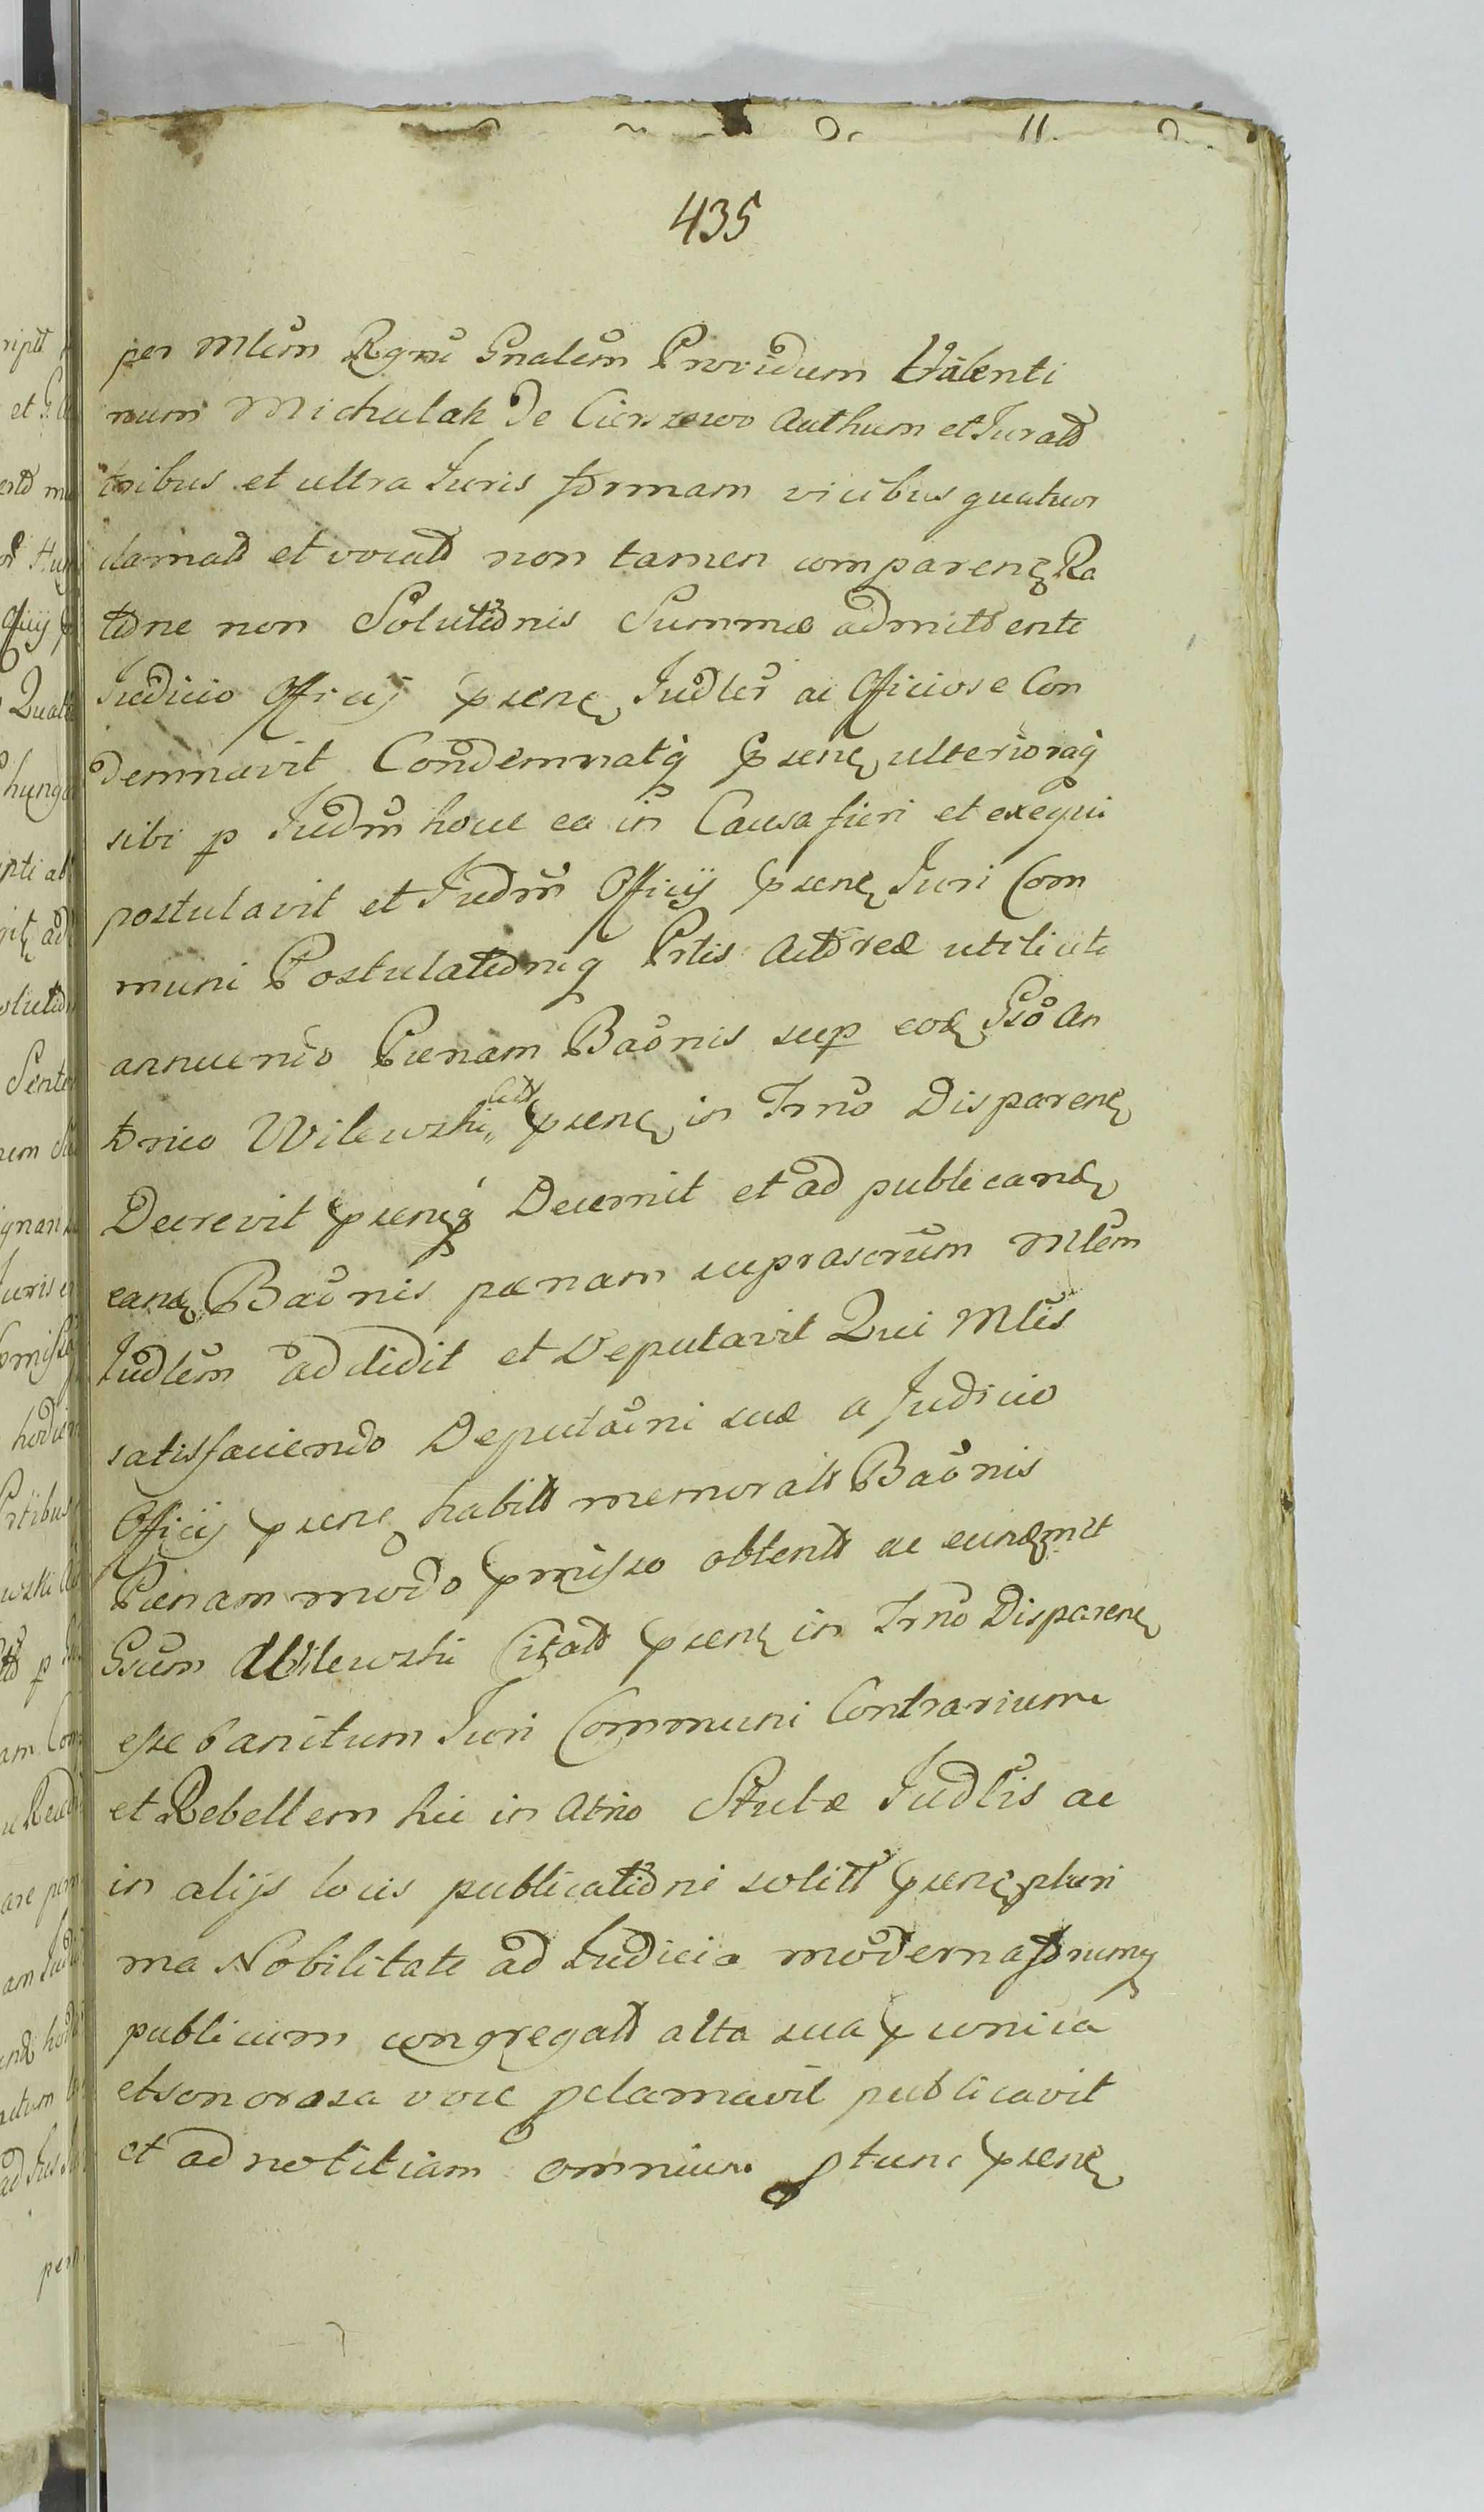 435
per Mlem Rgni Gnalem Providum Valenti
num Michulak de Cienzewo Authum et Jurat
tribus et ultra Juris formam vicibus quatuor
clamat et vocat non tamen comparen Ra
tione non Solutionis Summæ admittente
Judicio Officij præsen Judler ac Officiose Con
demnavit Condemnatq præsen ulterioraq
sibi p Judm hocce ea in Causa fieri et exequi
postulavit et Judm Officij præsen Juri Com
muni Postulationiq Prtis Actoreæ utilicite
annuendo Pænam Baonis sup eod Gso An
tonio Wilewski Citt præsen in Trno Disparen
Decrevit præsenq Decernit et ad publicand
eand Baonis pænam suprascrum Mlem
Judlem addidit et Deputavit Qui Mlis
satisfaciendo Deputaoni suæ a Judicio
Officij præsen habitt memorat Baonis
Pænam modo præmisso obtent ac eundmet
Gsum Wilewski Citat præsen in Trno Disparen
esse banitum Juri Communi Contrarium
et Rebellem hic in Atrio Stubæ Judlis ac
in alijs locis publicationi solitt præsen pluri
ma Nobilitate ad Judicia moderna forumq
publicum congregatt alta sua præconica
et sonorosa voce pclamavit publicavit
et ad notitiam omnium ptunc præsen